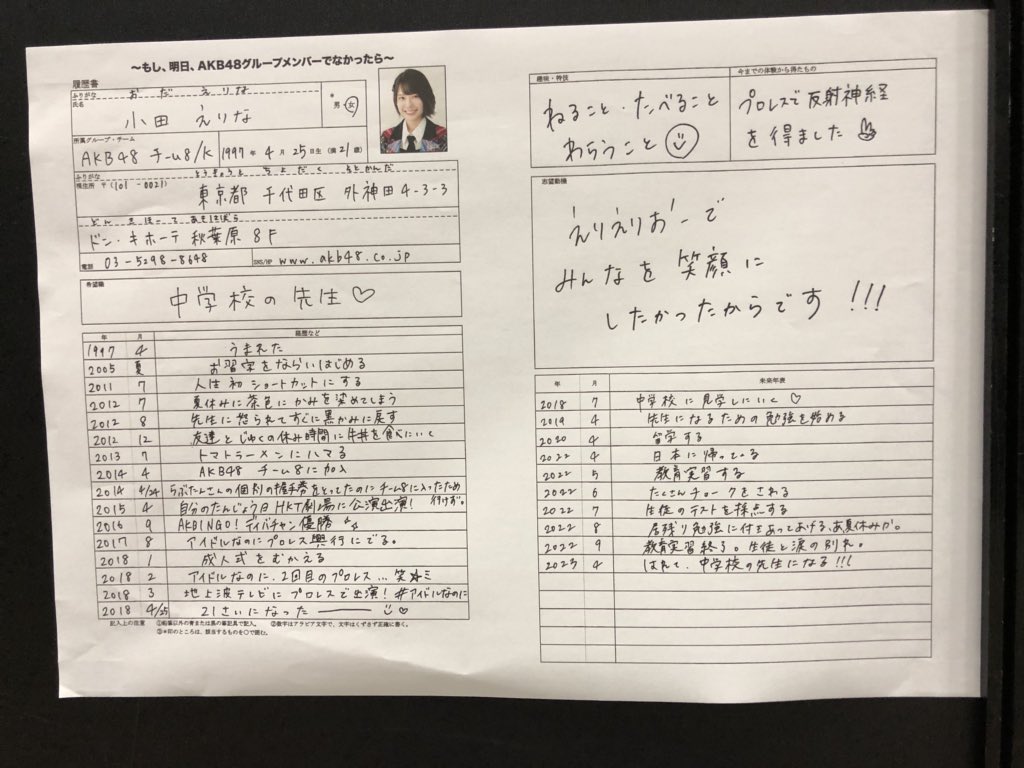 〜もし、明日、AKB48グループメンバーでなかったら〜
履歴書
ふりがな おだ えりな
氏名 小田 えりな
* 男・女
所属グループ・チーム
AKB48 チーム8/K 1997年 4月 25日生(満21歳)
ふりがな とうきょうと ちよだく そとかんだ
現住所 〒(101-0021)
東京都 千代田区 外神田4-3-3
どん きほーて あきはばら
ドン・キホーテ 秋葉原 8F
電話 03-5298-8648 SNS/HP www.akb48.co.jp
希望職
中学校の先生♡
年 月 経歴など
1997 4 うまれた
2005 夏 お習字をならいはじめる
2011 7 人生初ショートカットにする
2012 7 夏休みに茶色にかみを染めてしまう
2012 8 先生に怒られてすぐに黒かみに戻す
2012 12 友達とじゅくの休み時間に牛丼を食べにいく
2013 7 トマトラーメンにハマる
2014 4 AKB48 チーム8に加入
2014 4/24 らぶたんさんの個別の握手券をとってたのにチーム8に入ったため行けず。
2015 4 自分のたんじょう日HKT劇場に公演出演!
2016 9 AKBINGO!ディバチャン優勝
2017 8 アイドルなのにプロレス興行にでる。
2018 1 成人式をむかえる
2018 2 アイドルなのに、2回目のプロレス…笑
2018 3 地上波テレビにプロレスで出演!#アイドルなのに
2018 4/25 21さいになった ♡
記入上の注意 ①鉛筆以外の青または黒の筆記具で記入。 ②数字はアラビア文字で、文字はくずさず正確に書く。
③*印のところは、該当するものを○で囲む。
趣味・特技
ねること・たべること
わらうこと
今までの体験から得たもの
プロレスで反射神経
を得ました
志望動機
えりえりおーで
みんなを笑顔に
したかったからです!!!
年 月 未来年表
2018 7 中学校に見学しにいく♡
2019 4 先生になるための勉強を始める
2020 4 留学する
2022 4 日本に帰っている
2022 5 教育実習する
2022 6 たくさんチョークをさわる
2022 7 生徒のテストを採点する
2022 8 居残り勉強に付きあってあげる、お夏休みが。
2022 9 教育実習終了。生徒と涙の別れ。
2023 4 はれて、中学校の先生になる!!!